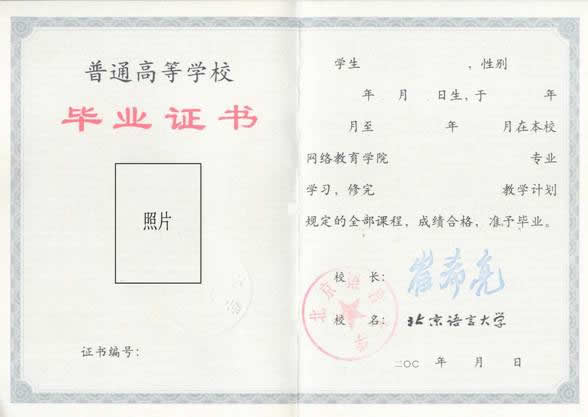 普通高等学校
毕业证书
照片
证书编号：
学生 ，性别
年 月 日生，于 年
月至 年 月在本校
网络教育学院 专业
学习，修完 教学计划
规定的全部课程，成绩合格，准予毕业。
校 长： 崔希亮
校 名： 北京语言大学
二〇〇 年 月 日